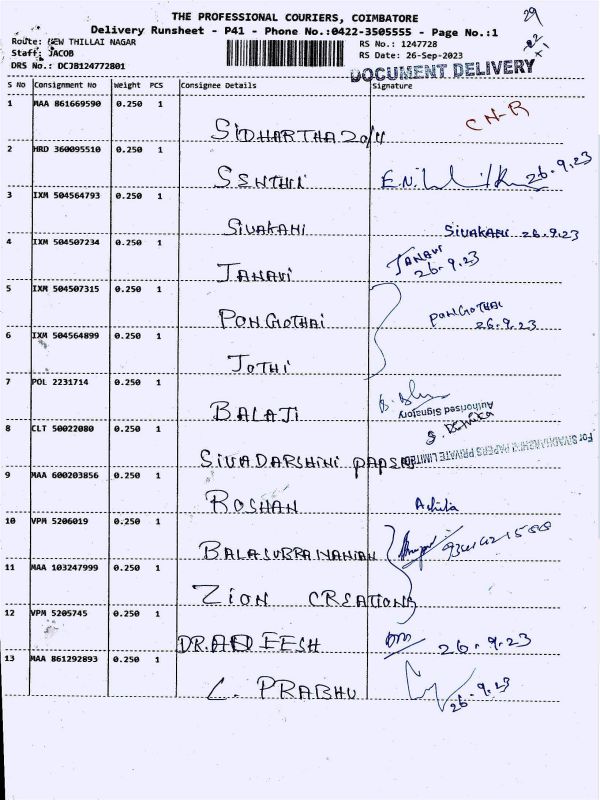 THE PROFESSIONAL COURIERS, COIMBATORE
29
Delivery Runsheet - P41 - Phone No.:0422-3505555 - Page No.:1
Route: NEW THILLAI NAGAR
RS No.: 1247728
Staff: JACOB
RS Date: 26-Sep-2023
DRS No.: DCJB124772801
DOCUMENT DELIVERY
S No Consignment No Weight PCS Consignee Details Signature
1 MAA 861669590 0.250 1
SIDHARTHA 20/4 CN-R
2 HRD 360095510 0.250 1
SENTHIL 26.9.23
3 IXM 504564793 0.250 1
SIVAKAMI SIVAKAMI 26.9.23
4 IXM 504507234 0.250 1
JANAVI JANAVI 26.9.23
5 IXM 504507315 0.250 1
PONGOTHAI PONGOTHAI 26.9.23
6 IXM 504564899 0.250 1
JOTHI
7 POL 2231714 0.250 1
BALAJI
Authorised Signatory
8 CLT 50022080 0.250 1
For SIVADHARSHINI PAPERS PRIVATE LIMITED
SIVADARSHINI PAPS
9 MAA 600203856 0.250 1
ROSHAN
10 VPM 5206019 0.250 1
BALASUBRAMANIAN
11 MAA 103247999 0.250 1
ZION CREATIONS
12 VPM 5205745 0.250 1
DR. 26.9.23
13 MAA 861292893 0.250 1
L. PRABHU 26.9.23